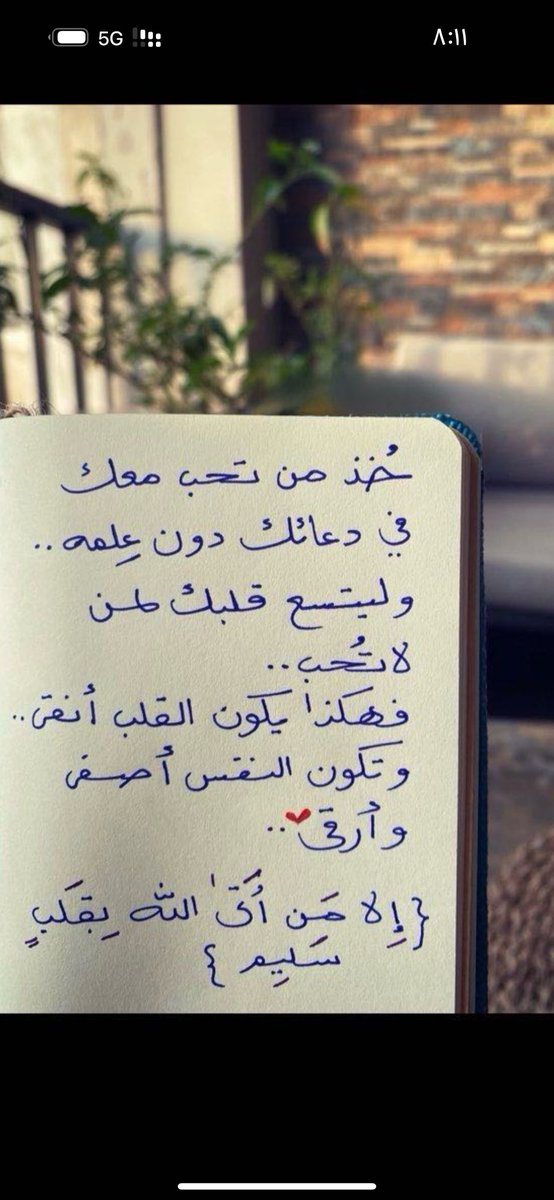 5G ٨:١١
خُذ من تحب معك
في دعائك دون عِلمه ..
وليتسع قلبك لمن
لا تُحب ..
فهكذا يكون القلب أنقى ..
وتكون النفس أصفى
وأرقى ..
{إِلا مَن أَتَى الله بِقَلبٍ
سَلِيم }